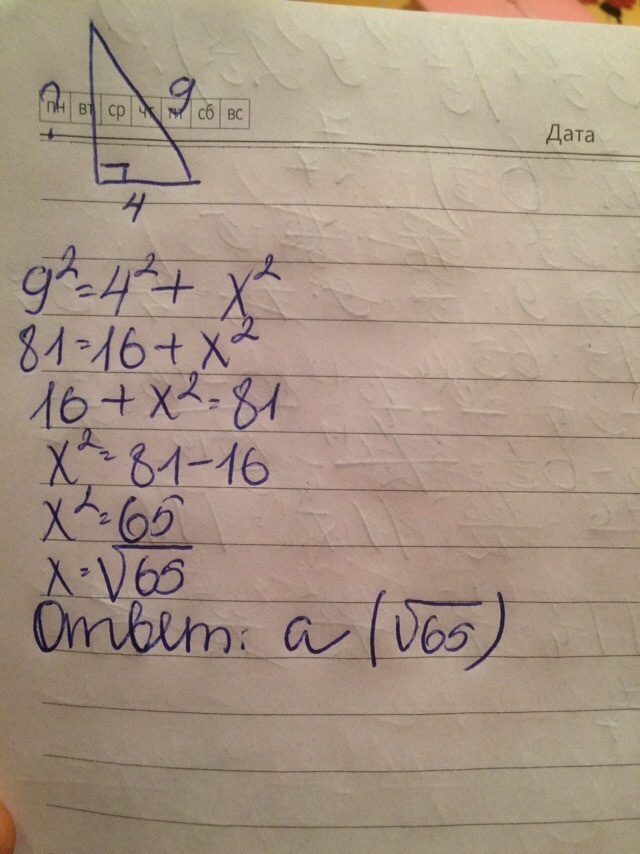 ?
9
пн вт ср чт пт сб вс
Дата
4
9²=4²+ x²
81=16+x²
16+x²=81
x²=81-16
x²=65
x=√65
Ответ: а (√65)